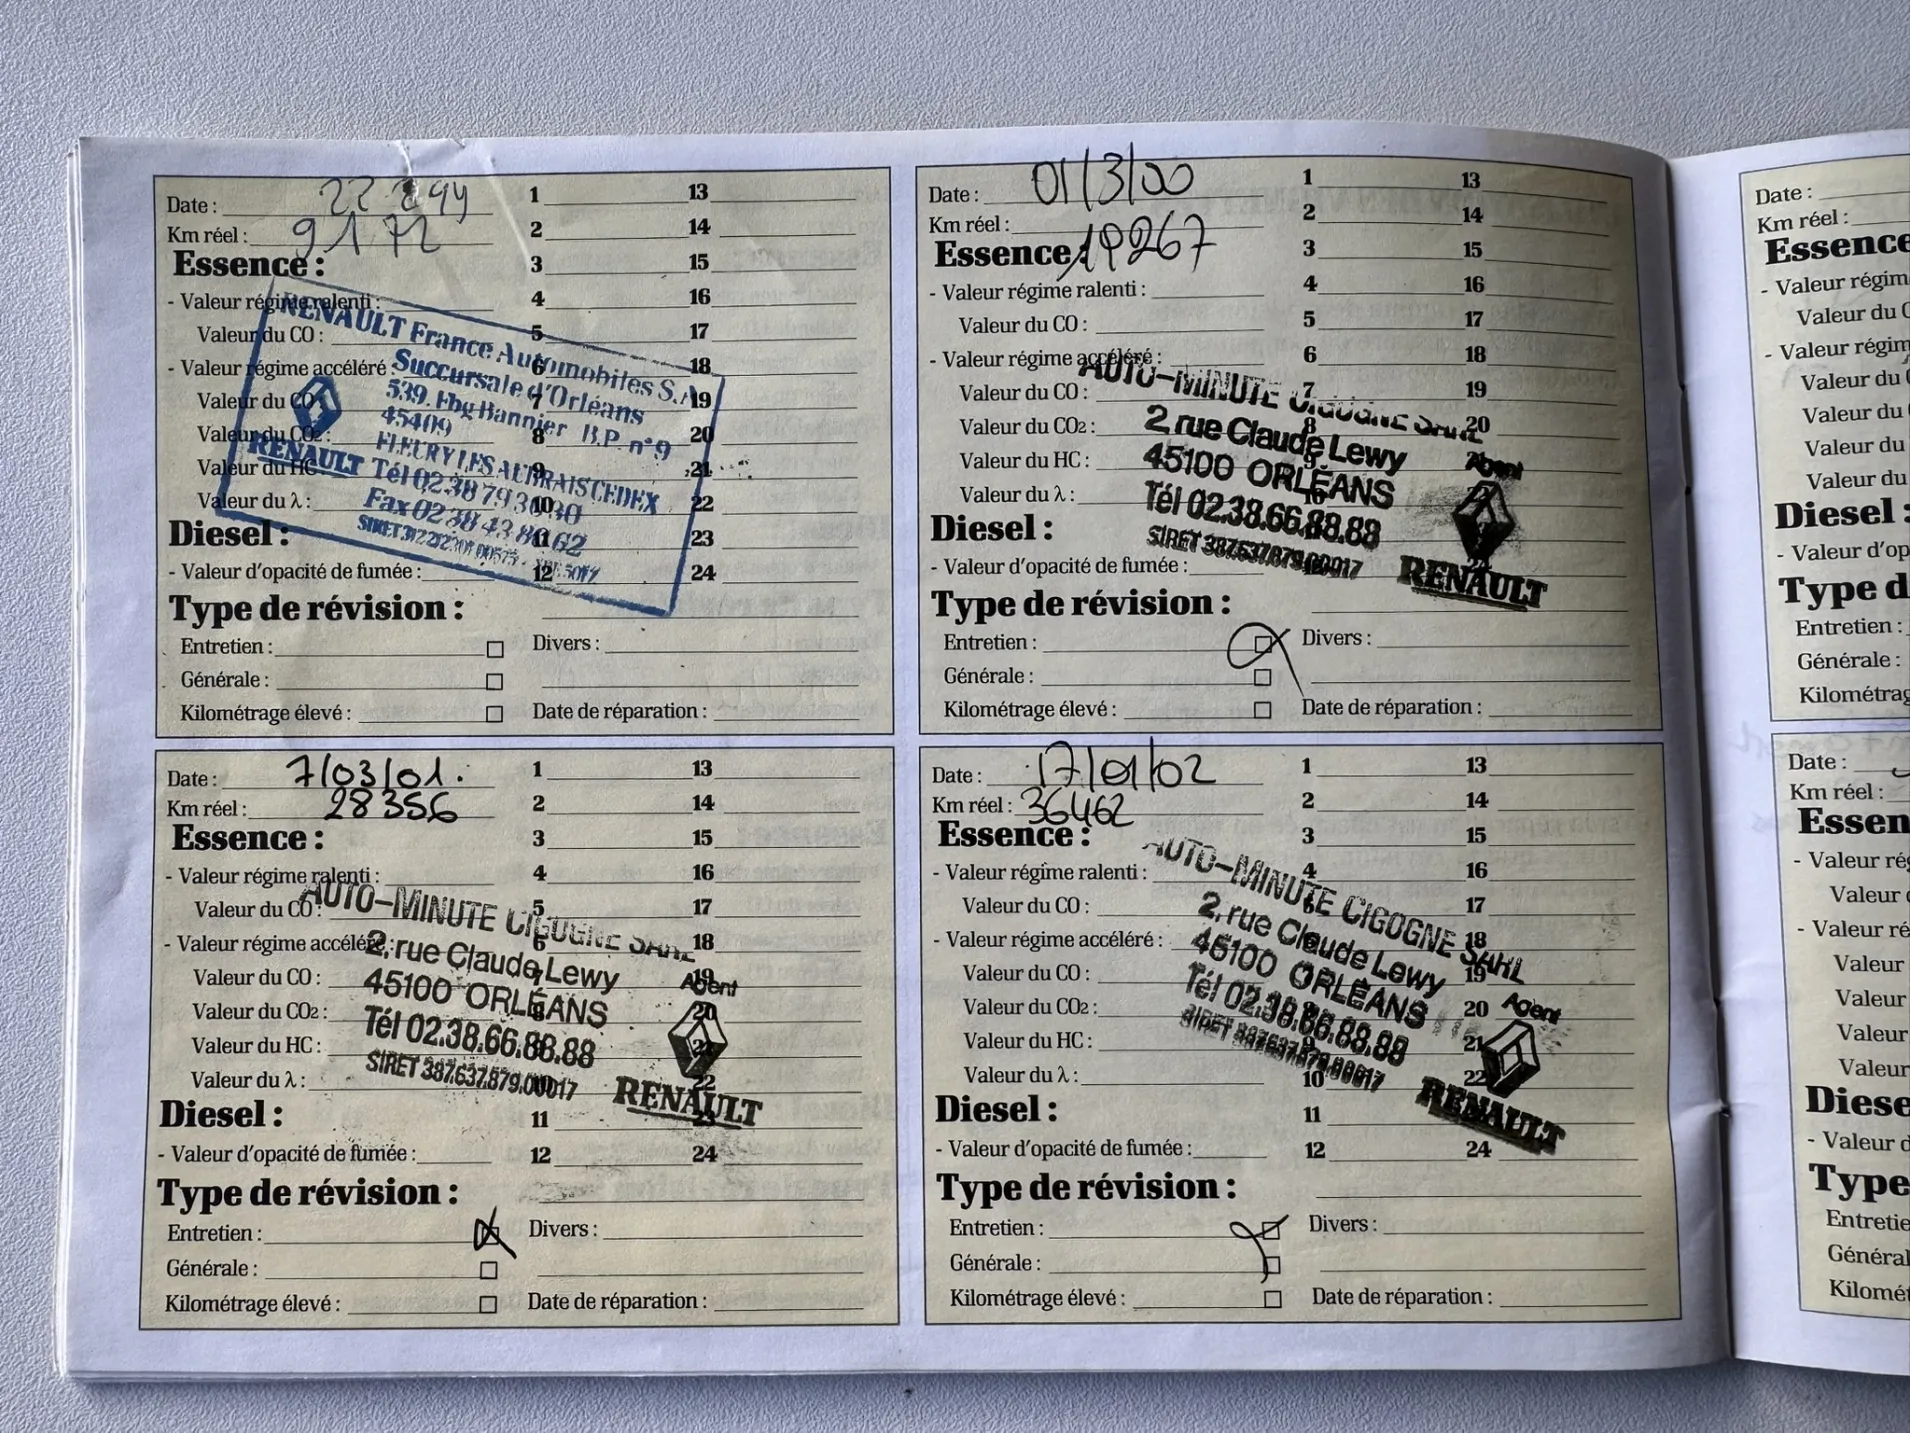 Date : 22 2 99
Km réel : 9172
Essence :
- Valeur régime ralenti :
Valeur du CO :
- Valeur régime accéléré :
Valeur du CO :
Valeur du CO2 :
Valeur du HC :
Valeur du λ :
Diesel :
- Valeur d'opacité de fumée :
1 13
2 14
3 15
4 16
5 17
6 18
7 19
8 20
9 21
10 22
11 23
12 24
RENAULT France Automobiles S.A
Succursale d'Orléans
539, Fbg Bannier B.P. n°9
45409
FLEURY LES AUBRAIS CEDEX
RENAULT
Tél 02 38 79 30 30
Fax 02 38 43 86 62
SIRET
Type de révision :
Entretien :
Générale :
Kilométrage élevé :
Divers :
Date de réparation :
Date : 01/3/00
Km réel : 19267
Essence :
- Valeur régime ralenti :
Valeur du CO :
- Valeur régime accéléré :
Valeur du CO :
Valeur du CO2 :
Valeur du HC :
Valeur du λ :
Diesel :
- Valeur d'opacité de fumée :
1 13
2 14
3 15
4 16
5 17
6 18
7 19
8 20
9
10
24
AUTO-MINUTE CIGOGNE SARL
2, rue Claude Lewy
45100 ORLÉANS
Tél 02.38.66.88.88
SIRET 387.637.879.00017
Agent
RENAULT
Type de révision :
Entretien :
Générale :
Kilométrage élevé :
Divers :
Date de réparation :
Date : 7/03/01.
Km réel : 28356
Essence :
- Valeur régime ralenti :
Valeur du CO :
- Valeur régime accéléré :
Valeur du CO :
Valeur du CO2 :
Valeur du HC :
Valeur du λ :
Diesel :
- Valeur d'opacité de fumée :
1 13
2 14
3 15
4 16
5 17
6 18
7 19
8 20
9 21
10 22
11 23
12 24
AUTO-MINUTE CIGOGNE SARL
2, rue Claude Lewy
45100 ORLÉANS
Tél 02.38.66.88.88
SIRET 387.637.879.00017
Agent
RENAULT
Type de révision :
Entretien :
Générale :
Kilométrage élevé :
Divers :
Date de réparation :
Date : 17/01/02
Km réel : 36462
Essence :
- Valeur régime ralenti :
Valeur du CO :
- Valeur régime accéléré :
Valeur du CO :
Valeur du CO2 :
Valeur du HC :
Valeur du λ :
Diesel :
- Valeur d'opacité de fumée :
1 13
2 14
3 15
4 16
5 17
6 18
19
20
9 21
10 22
11
12 24
AUTO-MINUTE CIGOGNE SARL
2, rue Claude Lewy
45100 ORLÉANS
Tél 02.38.66.88.88
SIRET 387.637.879.00017
Agent
RENAULT
Type de révision :
Entretien :
Générale :
Kilométrage élevé :
Divers :
Date de réparation :
Date :
Km réel :
Essence
- Valeur régim
Valeur du C
- Valeur régim
Valeur du
Valeur du
Valeur du
Valeur du
Diesel :
- Valeur d'op
Type d
Entretien :
Générale :
Kilométrag
Date :
Km réel :
Essen
- Valeur rég
Valeur
- Valeur ré
Valeur
Valeur
Valeur
Valeur
Diese
- Valeur d
Type
Entretie
Général
Kilomét